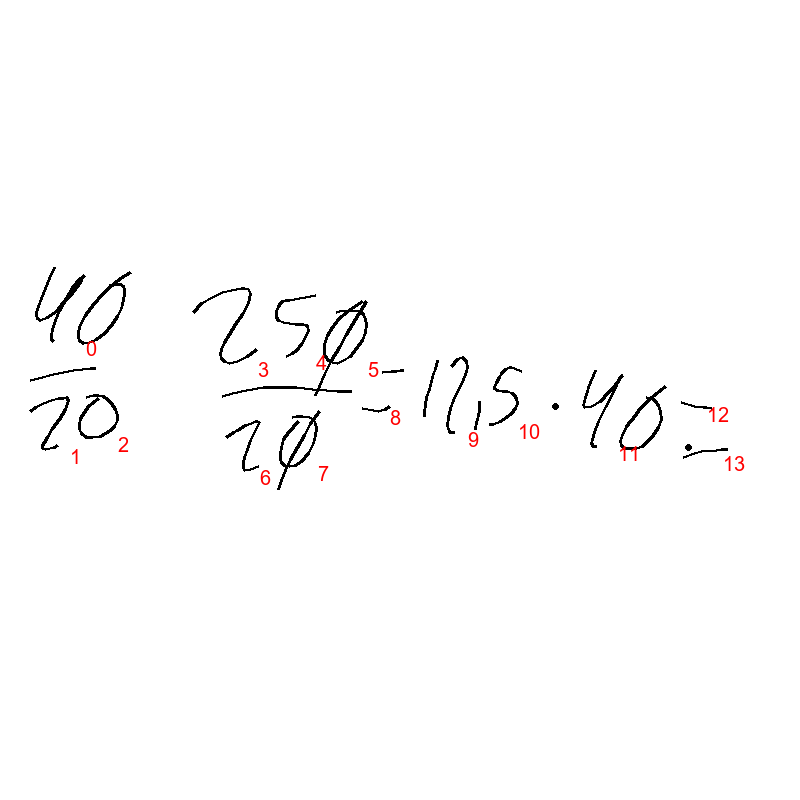 40 250
20 20 = 12,5 · 40 =
0 1 2 3 4 5 6 7 8 9 10 11 12 13